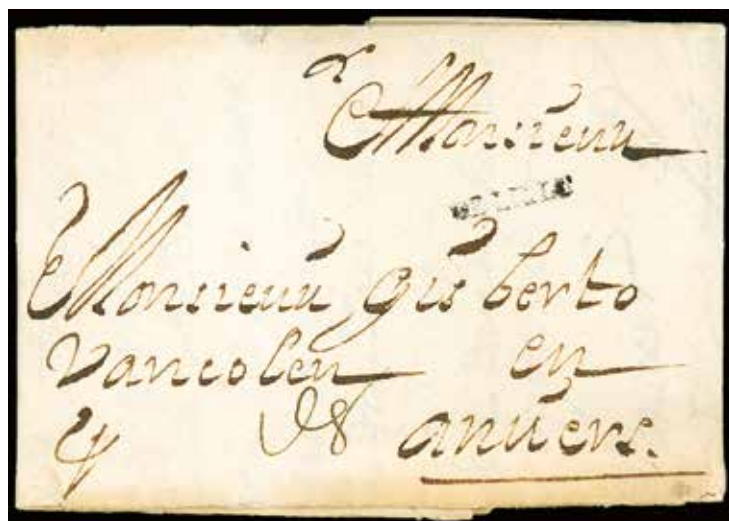 A
Monsieur
DE LILLE
Monsieur gis berto
Vancolen en
anuers.